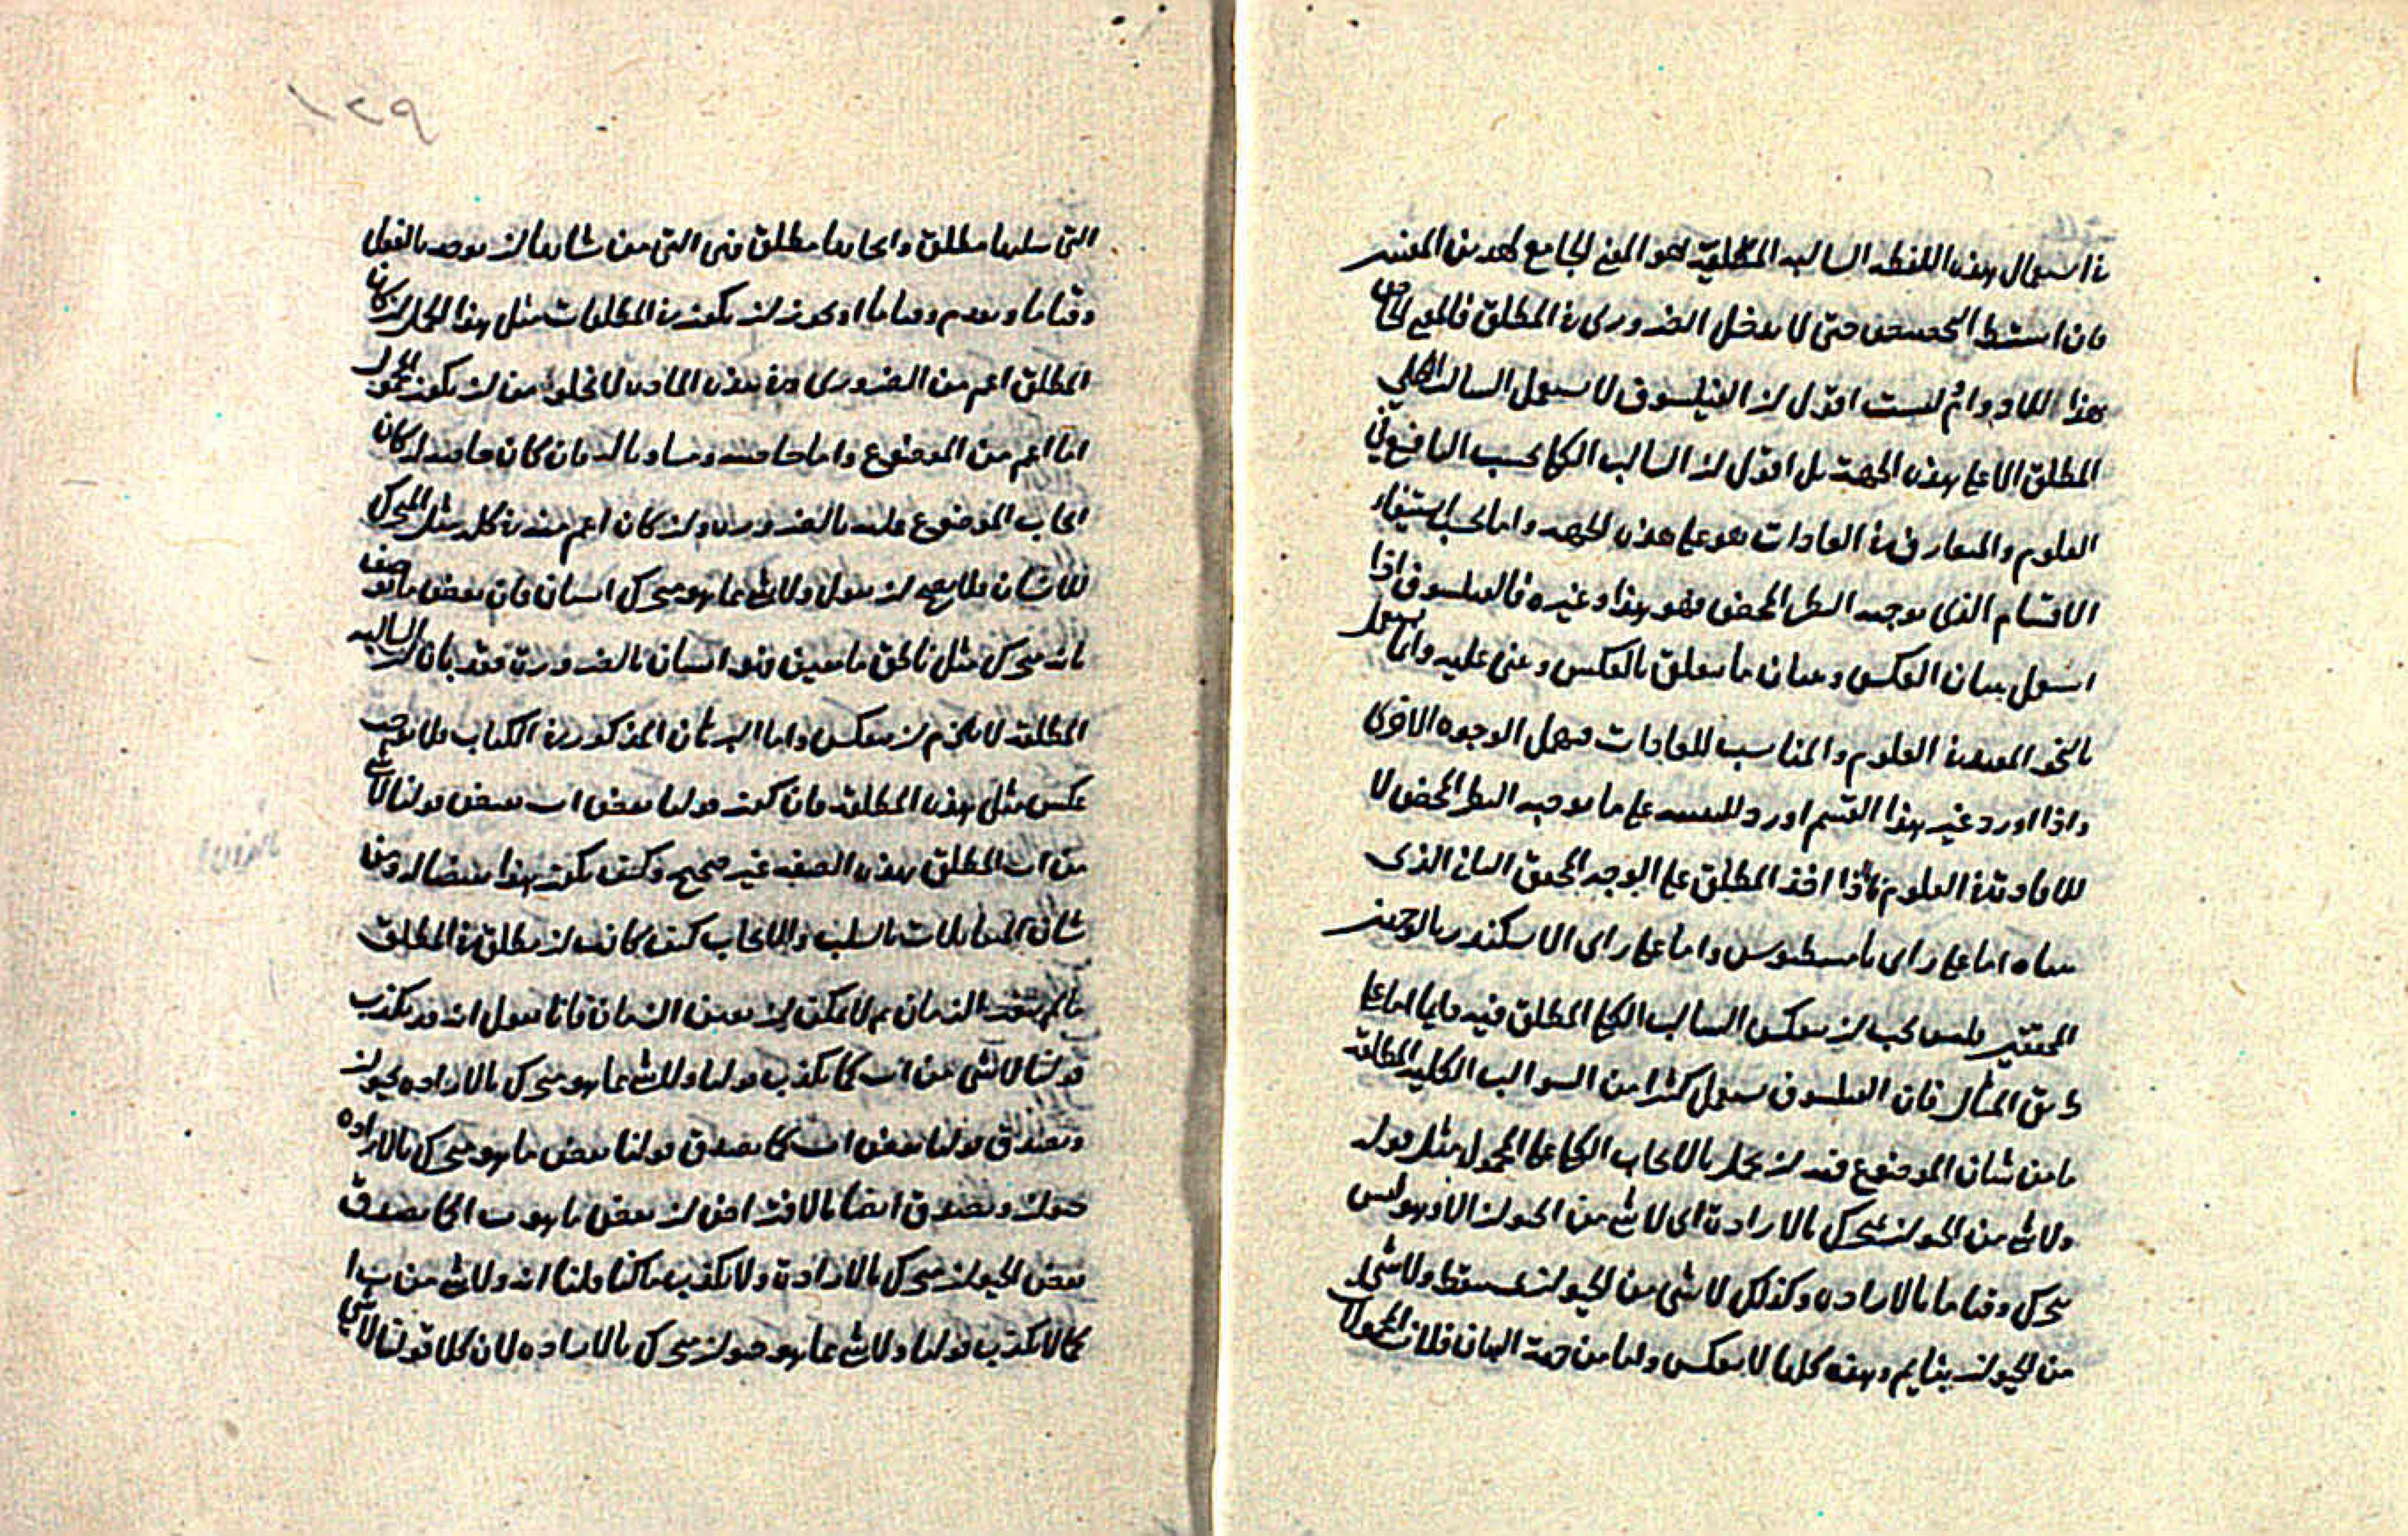 في استعمال هذه اللفظة السالبة المطلقة هو المعنى الجامع لهذين المعنيين
فان اشترط التخصيص حتى لا يدخل الضروري في المطلق فالمعنى الخاص
بهذا اللادوام لست اقول ان الفيلسوف لا يستعمل السالب الكلي
المطلق الا على هذه الجهة بل اقول ان السالب الكلي بحسب النافع في
العلوم والمتعارف في العادات هو على هذه الجهة واما بحسب استيفاء
الاقسام الذي يوجبه النظر المحض فهو هذا وغيره فالفيلسوف اذا
اشتغل ببيان العكس وببيان ما يتعلق بالعكس وعنى عليه وانما يستعمل
بالنحو المفيد في العلوم والمناسب للعادات فيهمل الوجوه الاخرى
واذا اورد غير هذا القسم اورد للتنبيه على ما يوجبه النظر المحض لا
للافادة في العلوم فاذا اخذ المطلق على الوجه المحقق الثاني الذي
بيناه اما على راى ثامسطيوس واما على راى الاسكندر بالوجهين
المحققين فليس يجب ان ينعكس السالب الكلي المطلق فيه دايما اما على
طريق المثال فان الفيلسوف يستعمل كثيرا من السوالب الكلية المطلقة
ما من شان الموضوع فيه ان يحمل بالايجاب الكلي على المحمول مثل قوله
ولا شي من الحيوان بمتحرك بالارادة اي لا شي من الحيوان الا وهو ليس
يتحرك وقتا ما بالارادة وكذلك لا شي من الحيوان بمستيقظ ولا شي
من الحيوان بنايم وهذه كلها لا ينعكس واما من جهة البيان فلان المحمولات
١٢٩
التي سلبها مطلق وايجابها مطلق فهي التي من شانها ان توجد بالفعل
وقتا ما وتعدم وقتا ما او يجوز ان يكون في المطلقات مثل هذا الحمل ان كان
المطلق اعم من الضروري وفي هذه المادة لا يخلو من ان يكون المحمول
اما اعم من الموضوع واما خاصته ومساويا له فان كان خاصة له كان
ايجاب الموضوع عليه بالضرورة وان كان اعم منه في كله مثل المتحرك
للانسان فلا يجب ان نقول ولا شي مما هو متحرك انسان فان بعض ما يوصف
بانه متحرك مثل ناطق ما معين فهو انسان بالضرورة فقد بان ان السالبة
المطلقة لا يلزم ان تنعكس واما البرهان المذكور في الكتاب فلا يوجب
عكس مثل هذه المطلقة فان كون قولنا بعض ا ب نقيض قولنا لا شي
من ا ب المطلق بهذه الصفة غير صحيح وكيف يكون هذا نقيضا له ومن
شان المتقابلات بالسلب والايجاب كيف كانت ان يطلق في المطلق
ما لم يتعين الزمان ثم لا يمكن ان يعين الزمان فانا نقول انه قد يكذب
قولنا لا شي من ا ب كما يكذب قولنا ولا شي مما هو متحرك بالارادة بحيوان
ويصدق قولنا بعض ا ب كما يصدق قولنا بعض ما هو متحرك بالارادة
حيوان ويصدق ايضا بالافتراض ان بعض ما هو ب ا كما يصدق
بعض الحيوان متحرك بالارادة ولا يكذب ما كنا قلنا انه ولا شي من ب ا
كما لا يكذب قولنا ولا شي مما هو حيوان متحرك بالارادة لان كلا قولنا لا شي